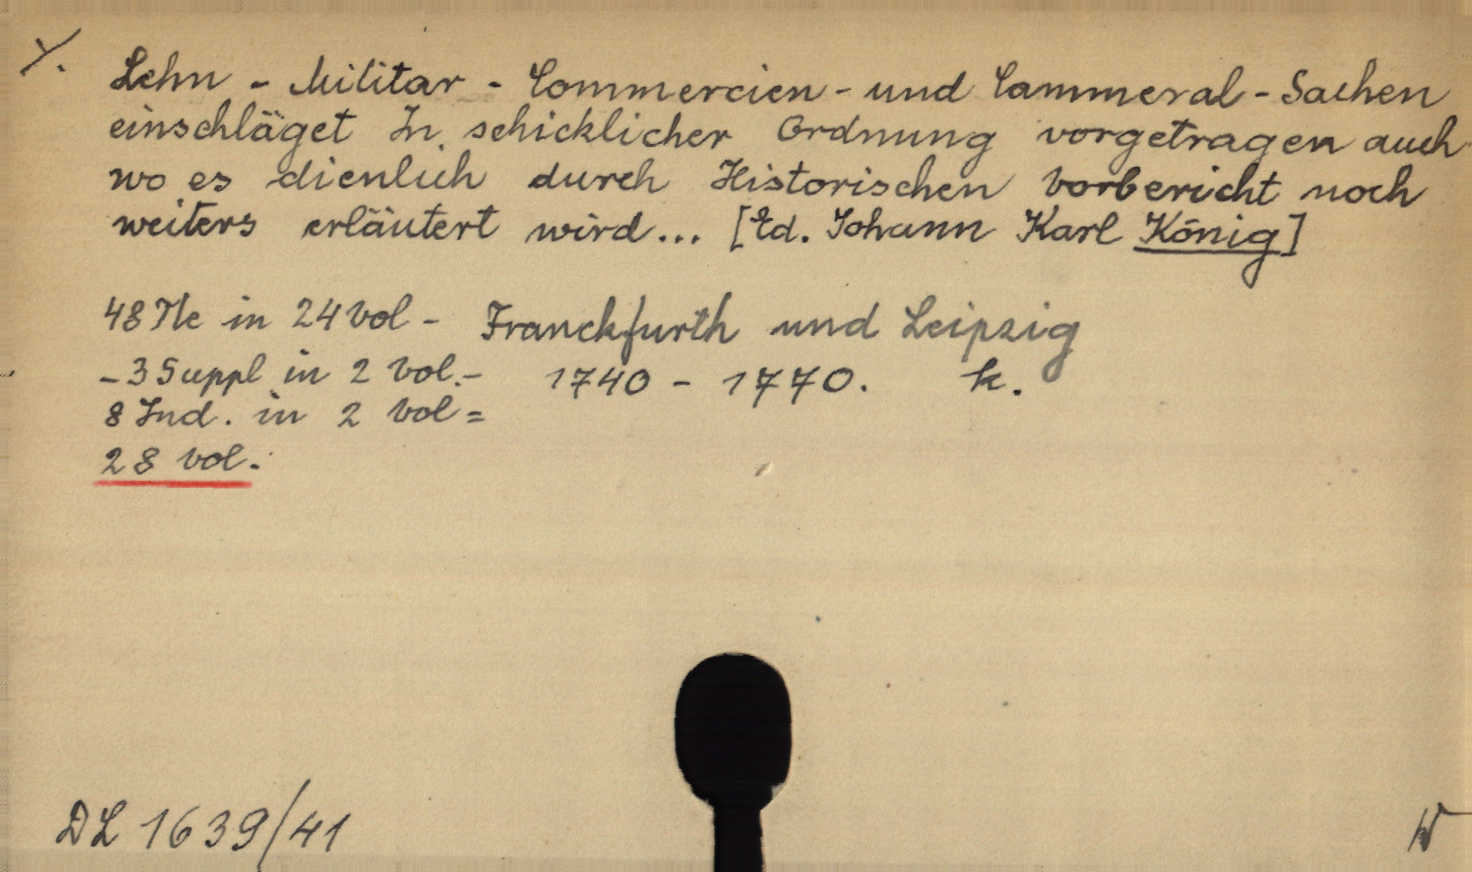 Y.
Lehn - Militar - Commercien - und Cammeral - Sachen
einschläget In schicklicher Ordnung vorgetragen auch
wo es dienlich durch Historischen Vorbericht noch
weiters erläutert wird... [Ed. Johann Karl König]
48 Tle in 24 Vol - Franckfurth und Leipzig
- 3 Suppl in 2 Vol. - 1740 - 1770. k.
8 Ind. in 2 Vol =
28 vol.
DL 1639/41
W